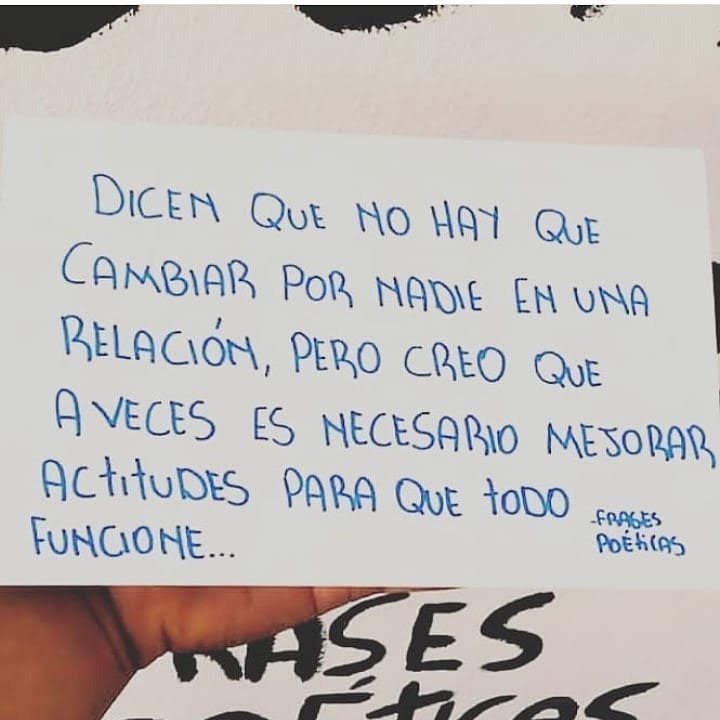 DICEN QUE NO HAY QUE
CAMBIAR POR NADIE EN UNA
RELACIÓN, PERO CREO QUE
A VECES ES NECESARIO MEJORAR
ACTITUDES PARA QUE TODO
FUNCIONE...
-FRASES
POÉTICAS
RASES
POÉTICAS